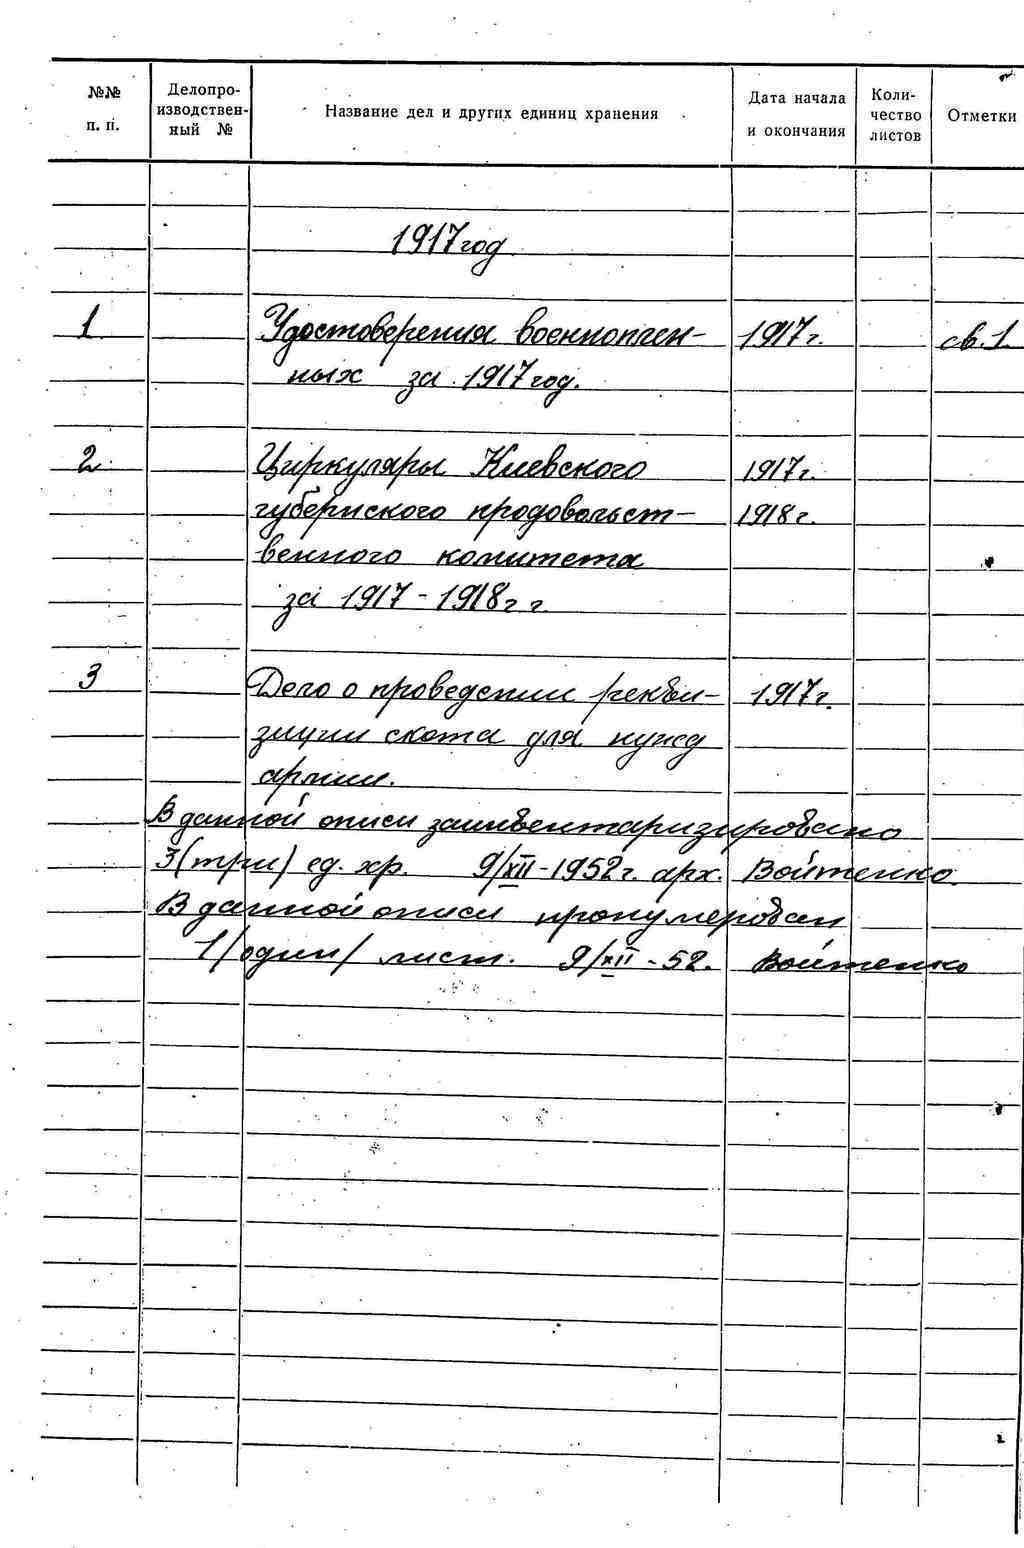 №№ п. п. Делопро-изводствен-ный № Название дел и других единиц хранения Дата начала и окончания Коли-чество листов Отметки
1917 год
1 Удостоверения военноплен- 1917 г. св. 1
ных за 1917 год.
2 Циркуляры Киевского 1917 г.
губернского продовольст- 1918 г.
венного комитета
за 1917-1918 г г
3 Дело о проведении рекви- 1917 г.
зиции скота для нужд
армии.
В данной описи заинвентаризировано
3 (три) ед. хр. 9/XII-1952 г. арх. Войтенко.
В данной описи пронумерован
1 /один/ лист. 9/XII-52. Войтенко